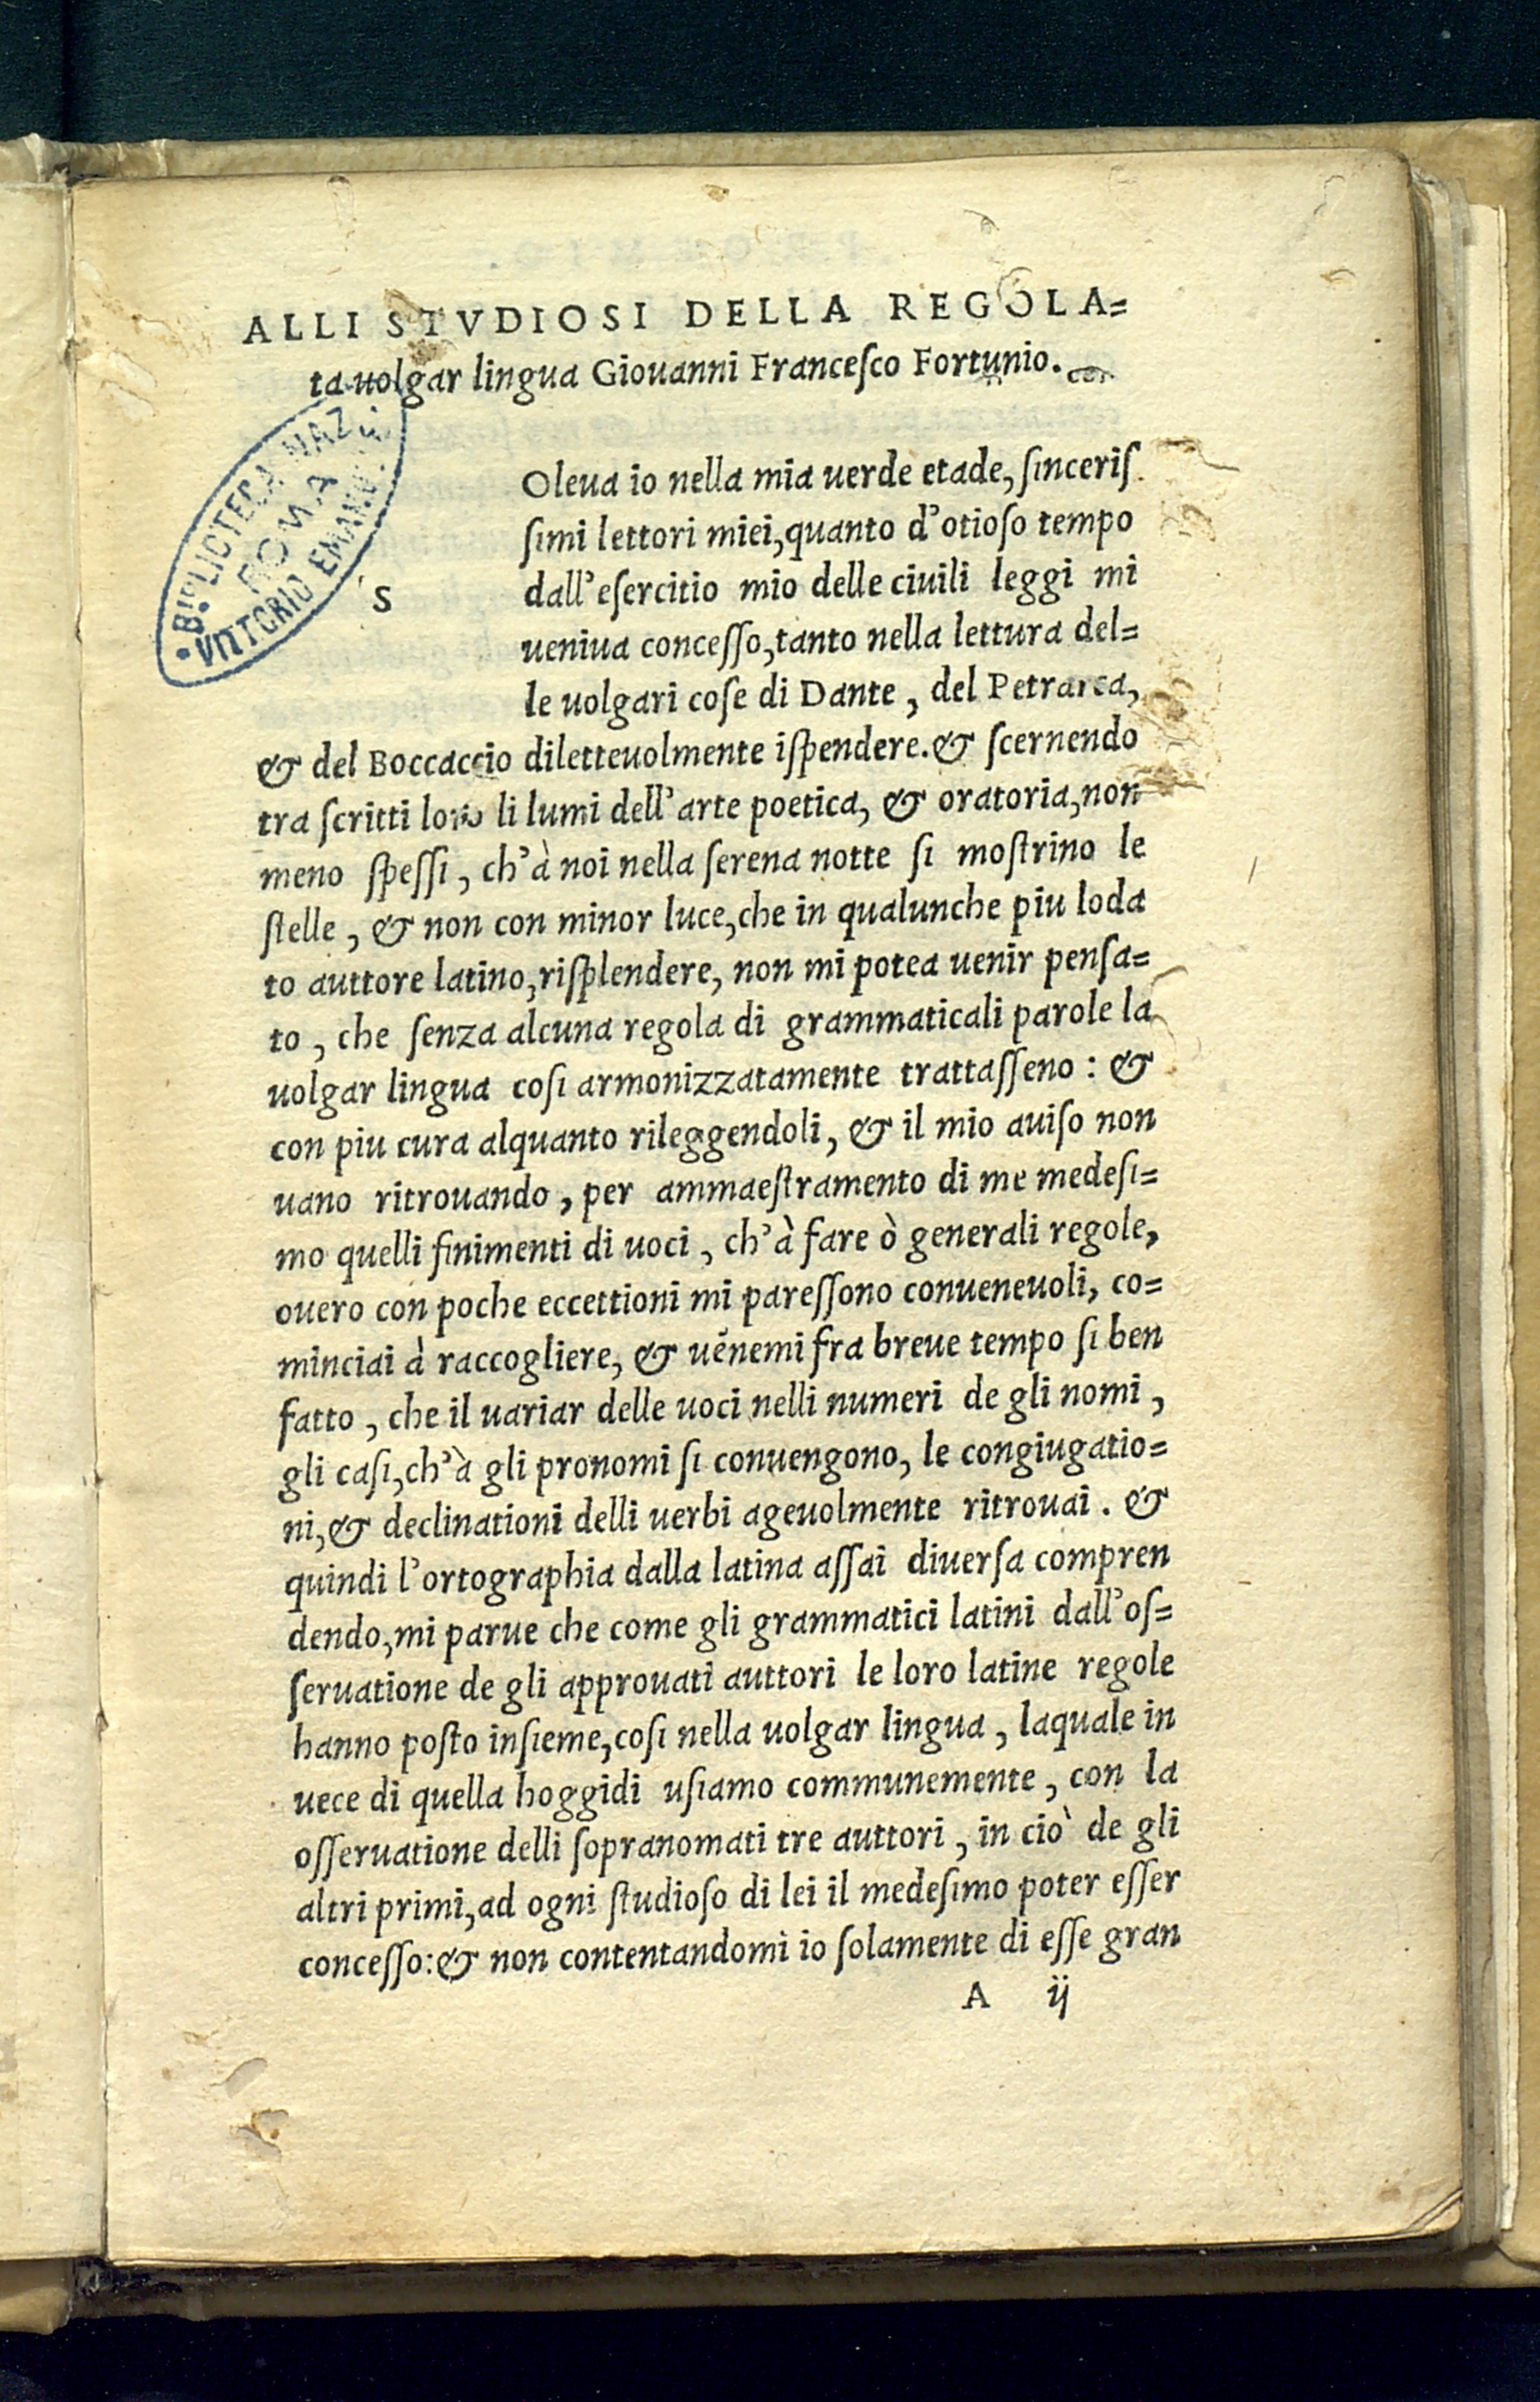 ALLI STVDIOSI DELLA REGOLA=
ta uolgar lingua Giouanni Franceſco Fortunio.
BIBLIOTECA NAZ.
ROMA
VITTORIO EMANUELE
S
Oleua io nella mia uerde etade, ſinceriſ
ſimi lettori miei, quanto d'otioſo tempo
dall'eſercitio mio delle ciuili leggi mi
ueniua conceſſo, tanto nella lettura del=
le uolgari coſe di Dante, del Petrarca,
& del Boccaccio dilettevolmente iſpendere. & ſcernendo
tra ſcritti loro li lumi dell'arte poetica, & oratoria, non
meno ſpeſſi, ch'à noi nella ſerena notte ſi moſtrino le
ſtelle, & non con minor luce, che in qualunche piu loda
to auttore latino, riſplendere, non mi potea uenir penſa=
to, che ſenza alcuna regola di grammaticali parole la
uolgar lingua coſi armonizzatamente trattaſſeno: &
con piu cura alquanto rileggendoli, & il mio auiſo non
uano ritrouando, per ammaeſtramento di me medeſi=
mo quelli finimenti di uoci, ch'à fare ò generali regole,
ouero con poche eccettioni mi pareſſono conueneuoli, co=
minciai à raccogliere, & uẽnemi fra breue tempo ſi ben
fatto, che il uariar delle uoci nelli numeri de gli nomi,
gli caſi, ch'à gli pronomi ſi conuengono, le congiugatio=
ni, & declinationi delli uerbi ageuolmente ritrouai. &
quindi l'ortographia dalla latina aſſai diuerſa compren
dendo, mi parue che come gli grammatici latini dall'oſ=
ſeruatione de gli approuati auttori le loro latine regole
hanno poſto inſieme, coſi nella uolgar lingua, laquale in
uece di quella hoggidi uſiamo communemente, con la
oſſeruatione delli ſopranomati tre auttori, in ciò de gli
altri primi, ad ogni ſtudioſo di lei il medeſimo poter eſſer
conceſſo: & non contentandomi io ſolamente di eſſe gran
A ij